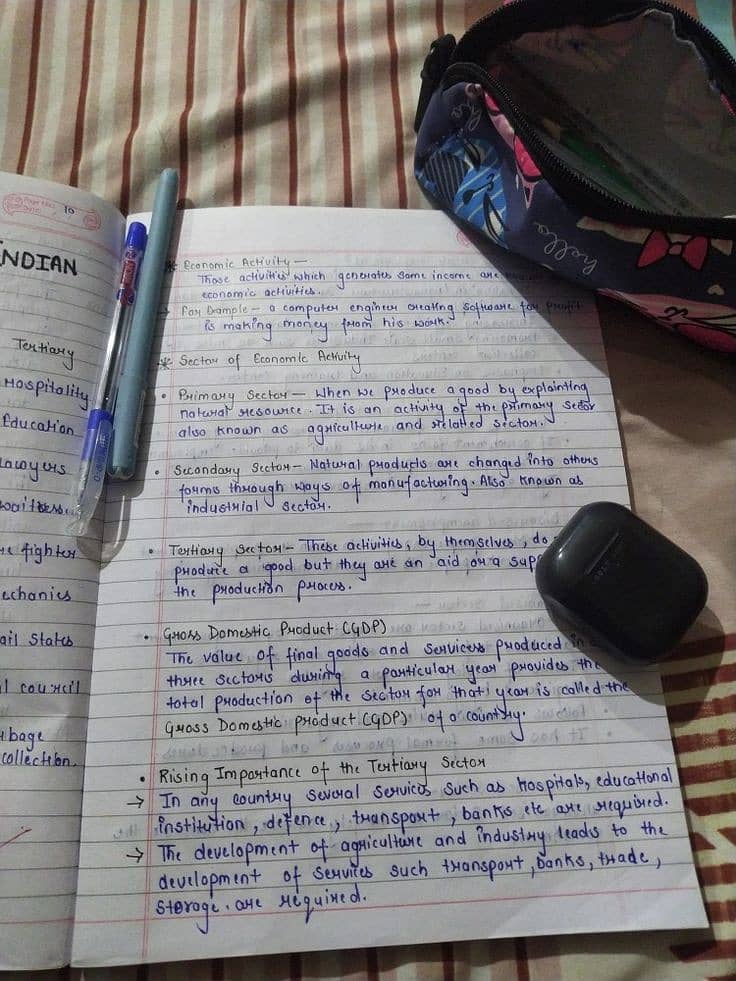 Page No. 10
Date:
INDIAN
Tertiary
Hospitality
Education
Lawyers
fighter
echanics
ail States
l council
rbage
collection.
* Economic Activity —
Those activities which generates some income are
economic activities.
→ For Example - a computer engineer creating software for profit
is making money from his work.
* Sector of Economic Activity
• Primary Sector — When we produce a good by explointing
natural resource. It is an activity of the primary sector
also known as agriculture and related sector.
• Secondary Sector - Natural products are changed into others
forms through ways of manufacturing. Also known as
industrial sector.
• Tertiary Sector - These activities, by themselves, do
produce a good but they are an aid or a sup
the production process.
• Gross Domestic Product (GDP)
The value of final goods and services produced in
three sectors during a particular year provides the
total production of the sector for that year is called the
Gross Domestic product (GDP) of a country.
• Rising Importance of the Tertiary Sector
→ In any country several services such as hospitals, educational
institution, defence, transport, banks etc are required.
→ The development of agriculture and industry leads to the
development of services such transport, banks, trade,
storage. are required.
hello